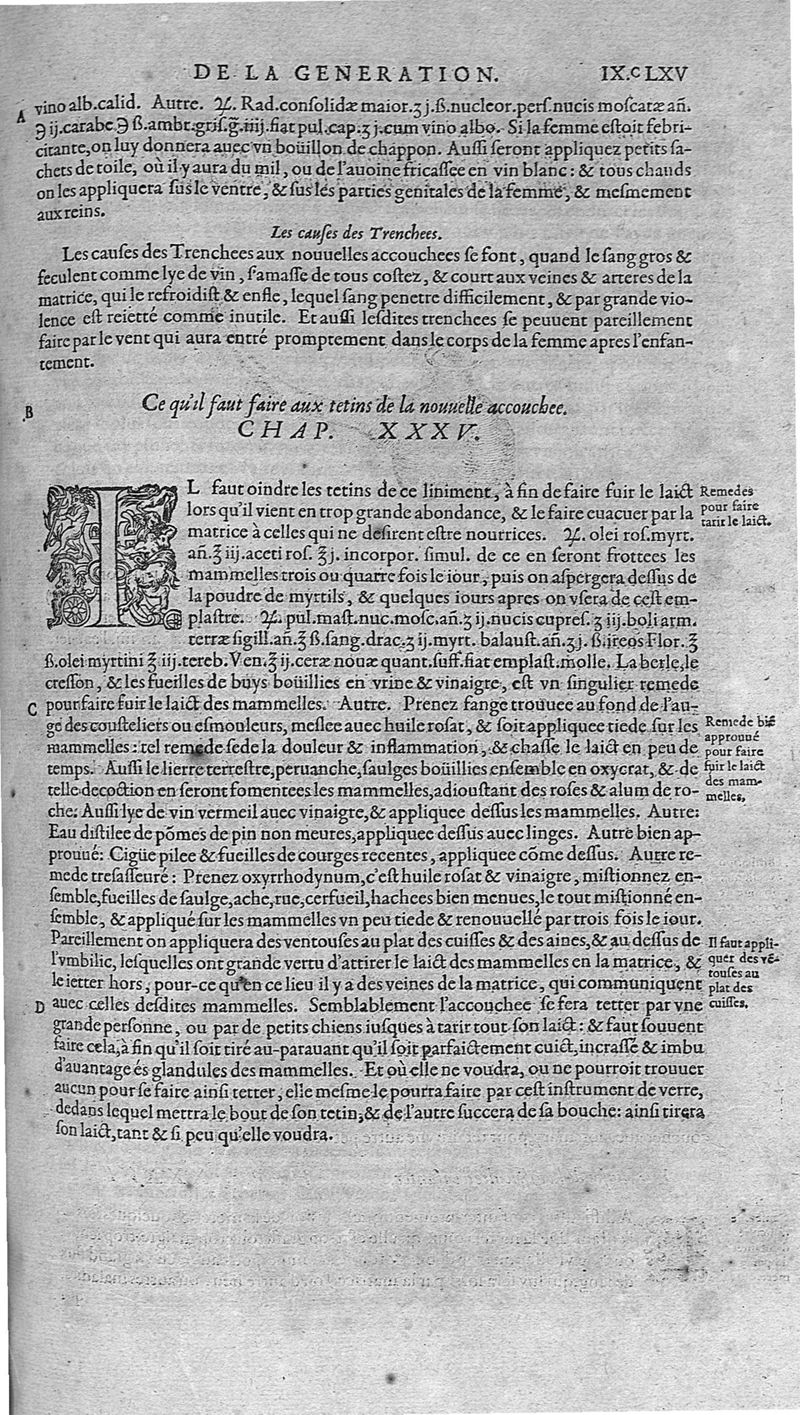 DE LA GENERATION. IX.C LXV
A vino alb.calid. Autre. ♃. Rad.conſolidæ maior.ʒ j.ß.nucleor.perſ.nucis moſcatæ añ.
℈ ij.carabe ℈ ß.ambr.griſ.g̃.iiij.fiat pul.cap.ʒ j.cum vino albo. Si la femme eſtoit febri-
citante,on luy donnera auec vn boüillon de chappon. Auſſi ſeront appliquez petits ſa-
chets de toile, où il y aura du mil, ou de l'auoine fricaſſee en vin blanc: & tous chauds
on les appliquera ſus le ventre, & ſus les parties genitales de la femme, & meſmement
aux reins.
Les cauſes des Trenchees.
Les cauſes des Trenchees aux nouuelles accouchees ſe font, quand le ſang gros &
feculent comme lye de vin, ſ'amaſſe de tous coſtez, & court aux veines & arteres de la
matrice, qui le refroidiſt & enfle, lequel ſang penetre difficilement, & par grande vio-
lence eſt reietté comme inutile. Et auſſi leſdites trenchees ſe peuuent pareillement
faire par le vent qui aura entré promptement dans le corps de la femme apres l'enfan-
tement.
B Ce qu'il faut faire aux tetins de la nouuelle accouchee.
CHAP. XXXV.
IL faut oindre les tetins de ce liniment, à fin de faire fuir le laict
lors qu'il vient en trop grande abondance, & le faire euacuer par la
matrice à celles qui ne deſirent eſtre nourrices. ♃. olei roſ.myrt.
añ.℥ iij.aceti roſ. ℥ j. incorpor. ſimul. de ce en ſeront frottees les
mammelles trois ou quatre fois le iour, puis on aſpergera deſſus de
la poudre de myrtils, & quelques iours apres on vſera de ceſt em-
plaſtre. ♃. pul.maſt.nuc.moſc.añ.ʒ ij.nucis cupreſ.ʒ iij.boli arm.
terræ ſigill.añ.℥ ß.ſang.drac.ʒ ij.myrt. balauſt.añ.ʒ j.ß.ireos Flor.℥
ß.olei myrtini ℥ iij.tereb.Ven.℥ ij.ceræ nouæ quant.ſuff.fiat emplaſt.molle. La berle,le
creſſon, & les fueilles de buys boüillies en vrine & vinaigre, eſt vn ſingulier remede
C pour faire fuir le laict des mammelles. Autre. Prenez fange trouuee au fond de l'au-
ge des couſteliers ou eſmouleurs, meſlee auec huile roſat, & ſoit appliquee tiede ſur les
mammelles: tel remede ſede la douleur & inflammation, & chaſſe le laict en peu de
temps. Auſſi le lierre terreſtre,peruanche,ſaulges boüillies enſemble en oxycrat, & de
telle decoction en ſeront fomentees les mammelles,adiouſtant des roſes & alum de ro-
che: Auſſi lye de vin vermeil auec vinaigre,& appliquee deſſus les mammelles. Autre:
Eau diſtilee de põmes de pin non meures,appliquee deſſus auec linges. Autre bien ap-
prouué: Cigüe pilee & fueilles de courges recentes, appliquee cõme deſſus. Autre re-
mede treſaſſeuré: Prenez oxyrrhodynum,c'eſt huile roſat & vinaigre, miſtionnez en-
ſemble,fueilles de ſaulge,ache,rue,cerfueil,hachees bien menues,le tout miſtionné en-
ſemble, & appliqué ſur les mammelles vn peu tiede & renouuellé par trois fois le iour.
Pareillement on appliquera des ventouſes au plat des cuiſſes & des aines,& au deſſus de
l'vmbilic, leſquelles ont grande vertu d'attirer le laict des mammelles en la matrice, &
le ietter hors, pour-ce qu'en ce lieu il y a des veines de la matrice, qui communiquent
D auec celles deſdites mammelles. Semblablement l'accouchee ſe fera tetter par vne
grande perſonne, ou par de petits chiens iuſques à tarir tout ſon laict: & faut ſouuent
faire cela,à fin qu'il ſoit tiré au-parauant qu'il ſoit parfaictement cuict,incraſſé & imbu
d'auantage és glandules des mammelles. Et où elle ne voudra, ou ne pourroit trouuer
aucun pour ſe faire ainſi tetter, elle meſme le pourra faire par ceſt inſtrument de verre,
dedans lequel mettra le bout de ſon tetin,& de l'autre ſuccera de ſa bouche: ainſi tirera
ſon laict,tant & ſi peu qu'elle voudra.
Remedes
pour faire
tarir le laict.
Remede biẽ
approuué
pour faire
fuir le laict
des mam-
melles,
Il faut appli-
quer des vẽ-
touſes au
plat des
cuiſſes,